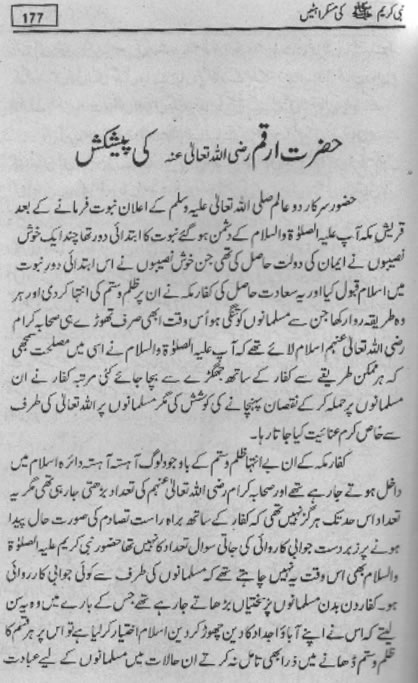 177
نبی کریم ﷺ کی مسکراہٹیں
حضرت ارقم رضی اللہ تعالیٰ عنہ کی پیشکش
حضور سرکار دو عالم صلی اللہ تعالیٰ علیہ وسلم کے اعلان نبوت فرمانے کے بعد
قریش مکہ آپ علیہ الصلوٰۃ والسلام کے دشمن ہو گئے نبوت کا ابتدائی دور تھا چند ایک خوش
نصیبوں نے ایمان کی دولت حاصل کی تھی جن خوش نصیبوں نے اس ابتدائی دور نبوت
میں اسلام قبول کیا اور یہ سعادت حاصل کی کفار مکہ نے ان پر ظلم و ستم کی انتہا کر دی اور ہر
وہ طریقہ روا رکھا جن سے مسلمانوں کو تنگی ہو اُس وقت ابھی صرف تھوڑے ہی صحابہ کرام
رضی اللہ تعالیٰ عنہم اسلام لائے تھے کہ آپ علیہ الصلوٰۃ والسلام نے اسی میں مصلحت سمجھی
کہ ہر ممکن طریقے سے کفار کے ساتھ جھگڑے سے بچا جائے کئی مرتبہ کفار نے ان
مسلمانوں پر حملہ کر کے نقصان پہنچانے کی کوشش کی مگر مسلمانوں پر اللہ تعالیٰ کی طرف
سے خاص کرم عنائیت کیا جاتا رہا۔
کفار مکہ کے ان بے انتہا ظلم و ستم کے باوجود لوگ آہستہ آہستہ دائرہ اسلام میں
داخل ہوتے جا رہے تھے اور صحابہ کرام رضی اللہ تعالیٰ عنہم کی تعداد بڑھتی جا رہی تھی مگر یہ
تعداد اس حد تک ہرگز نہیں تھی کہ کفار کے ساتھ براہ راست تصادم کی صورت حال پیدا
ہونے پر زبردست جوابی کاروائی کی جاتی سوال تعداد کا نہیں تھا حضور نبی کریم علیہ الصلوٰۃ
والسلام بھی اس وقت یہ نہیں چاہتے تھے کہ مسلمانوں کی طرف سے کوئی جوابی کارروائی
ہو۔ کفار دن بدن مسلمانوں پر سختیاں بڑھاتے جا رہے تھے جس کے بارے میں وہ یہ سن
لیتے کہ اس نے اپنے آباؤ اجداد کا دین چھوڑ کر دین اسلام اختیار کر لیا ہے تو اس پر ہر قسم کا
ظلم و ستم ڈھانے میں ذرا بھی تامل نہ کرتے ان حالات میں مسلمانوں کے لیے عبادت